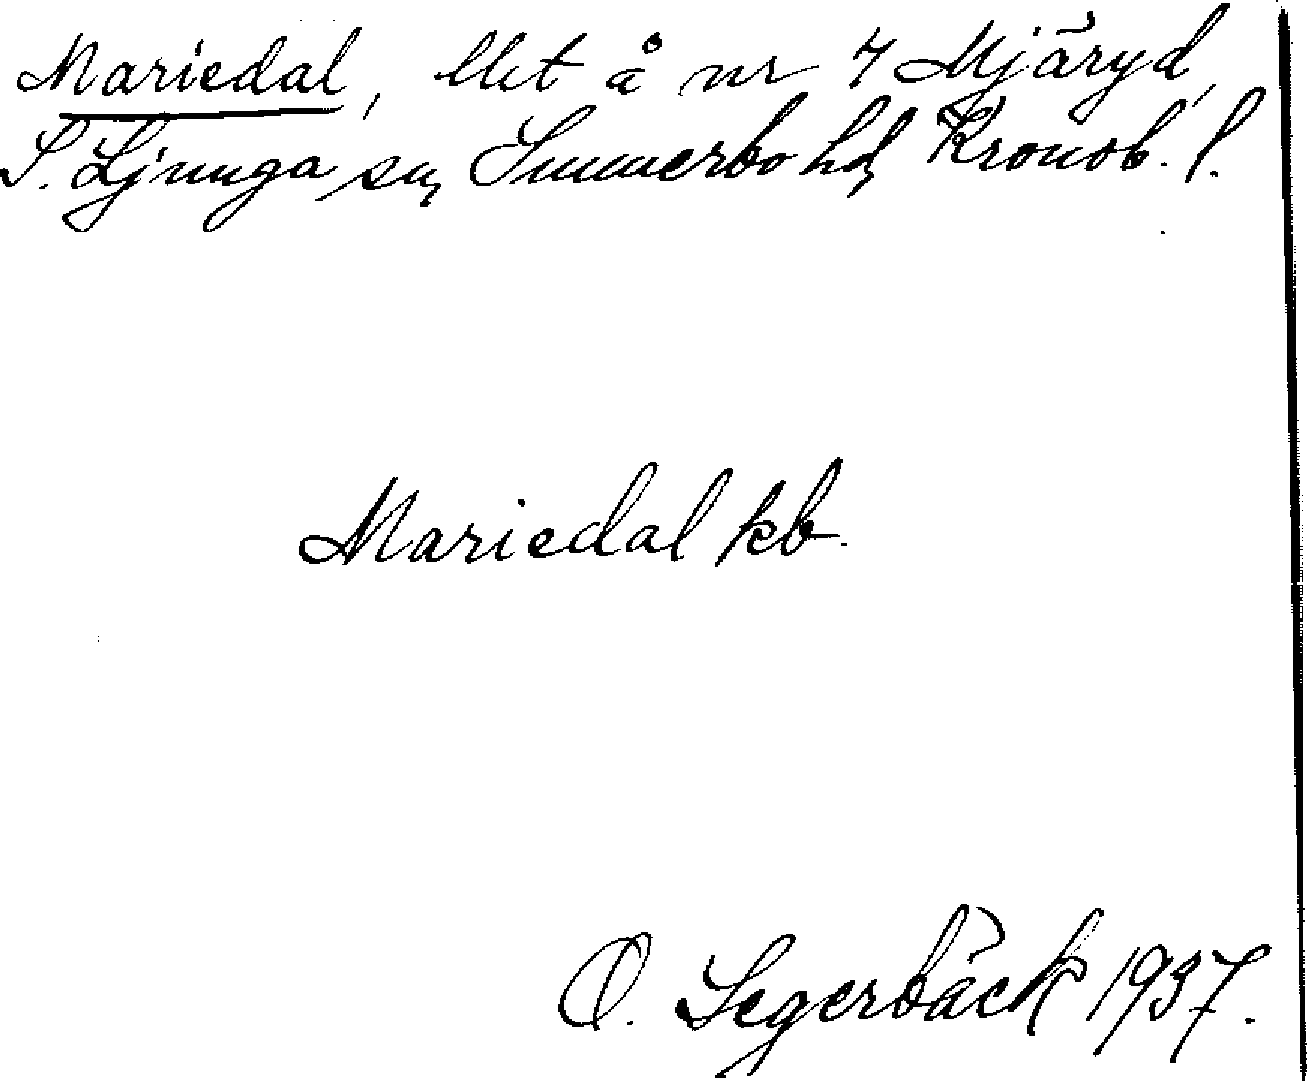 Mariedal, llet å nr 7 Mjäryd,
S. Ljunga sn, Sunnerbo hd, Kronob. l.
Mariedal kb.
O. Segerbäck 1937.